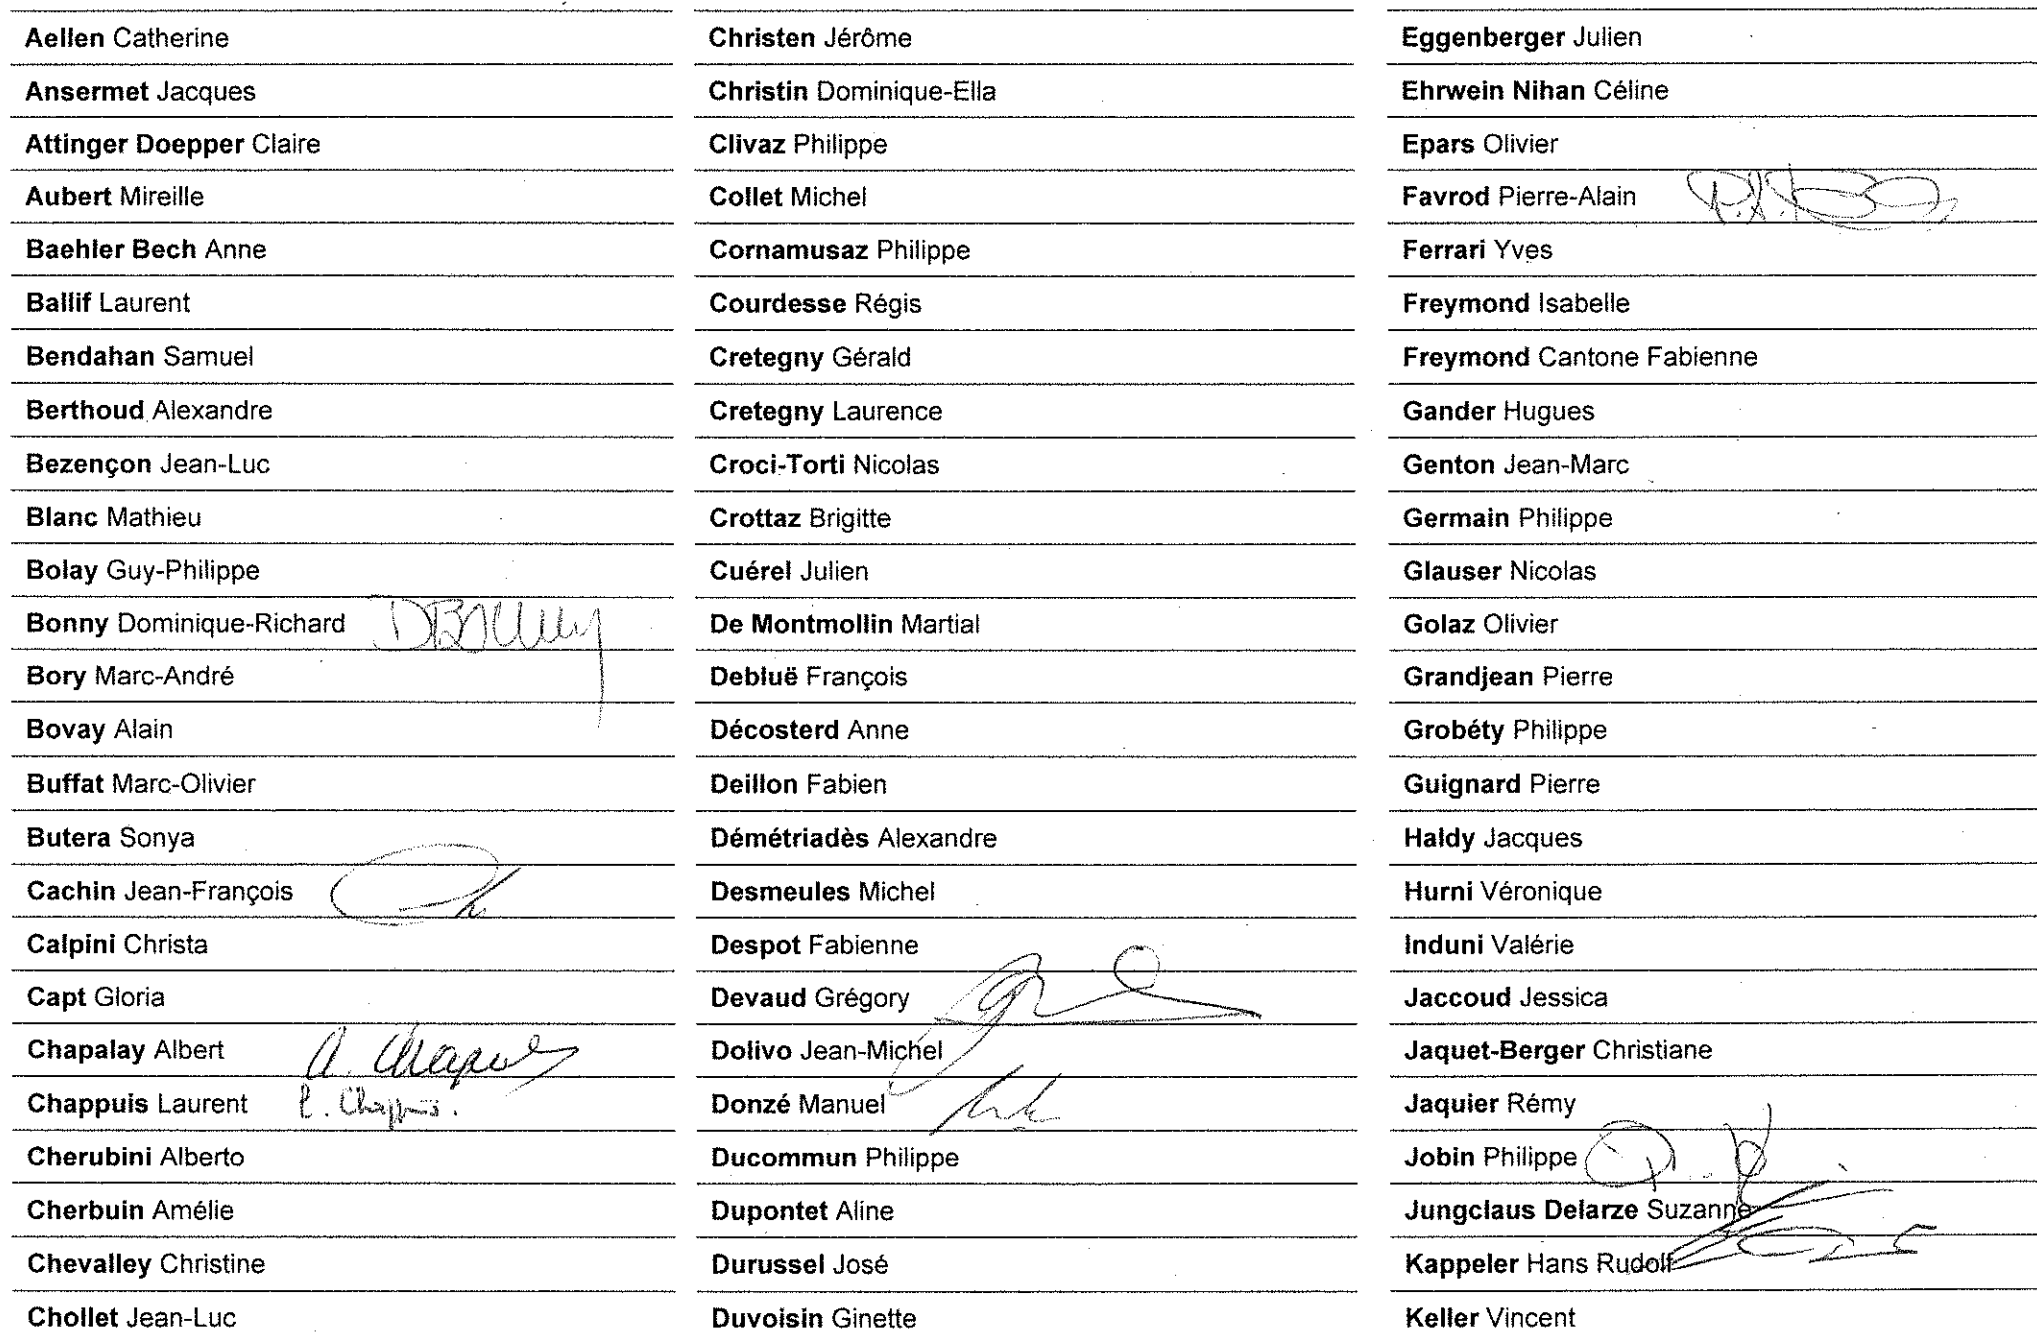 Aellen Catherine
Ansermet Jacques
Attinger Doepper Claire
Aubert Mireille
Baehler Bech Anne
Ballif Laurent
Bendahan Samuel
Berthoud Alexandre
Bezençon Jean-Luc
Blanc Mathieu
Bolay Guy-Philippe
Bonny Dominique-Richard DBonny
Bory Marc-André
Bovay Alain
Buffat Marc-Olivier
Butera Sonya
Cachin Jean-François
Calpini Christa
Capt Gloria
Chapalay Albert A. Chapalay
Chappuis Laurent L. Chappuis.
Cherubini Alberto
Cherbuin Amélie
Chevalley Christine
Chollet Jean-Luc
Christen Jérôme
Christin Dominique-Ella
Clivaz Philippe
Collet Michel
Cornamusaz Philippe
Courdesse Régis
Cretegny Gérald
Cretegny Laurence
Croci-Torti Nicolas
Crottaz Brigitte
Cuérel Julien
De Montmollin Martial
Debluë François
Décosterd Anne
Deillon Fabien
Démétriadès Alexandre
Desmeules Michel
Despot Fabienne
Devaud Grégory
Dolivo Jean-Michel
Donzé Manuel
Ducommun Philippe
Dupontet Aline
Durussel José
Duvoisin Ginette
Eggenberger Julien
Ehrwein Nihan Céline
Epars Olivier
Favrod Pierre-Alain
Ferrari Yves
Freymond Isabelle
Freymond Cantone Fabienne
Gander Hugues
Genton Jean-Marc
Germain Philippe
Glauser Nicolas
Golaz Olivier
Grandjean Pierre
Grobéty Philippe
Guignard Pierre
Haldy Jacques
Hurni Véronique
Induni Valérie
Jaccoud Jessica
Jaquet-Berger Christiane
Jaquier Rémy
Jobin Philippe
Jungclaus Delarze Suzanne
Kappeler Hans Rudolf
Keller Vincent